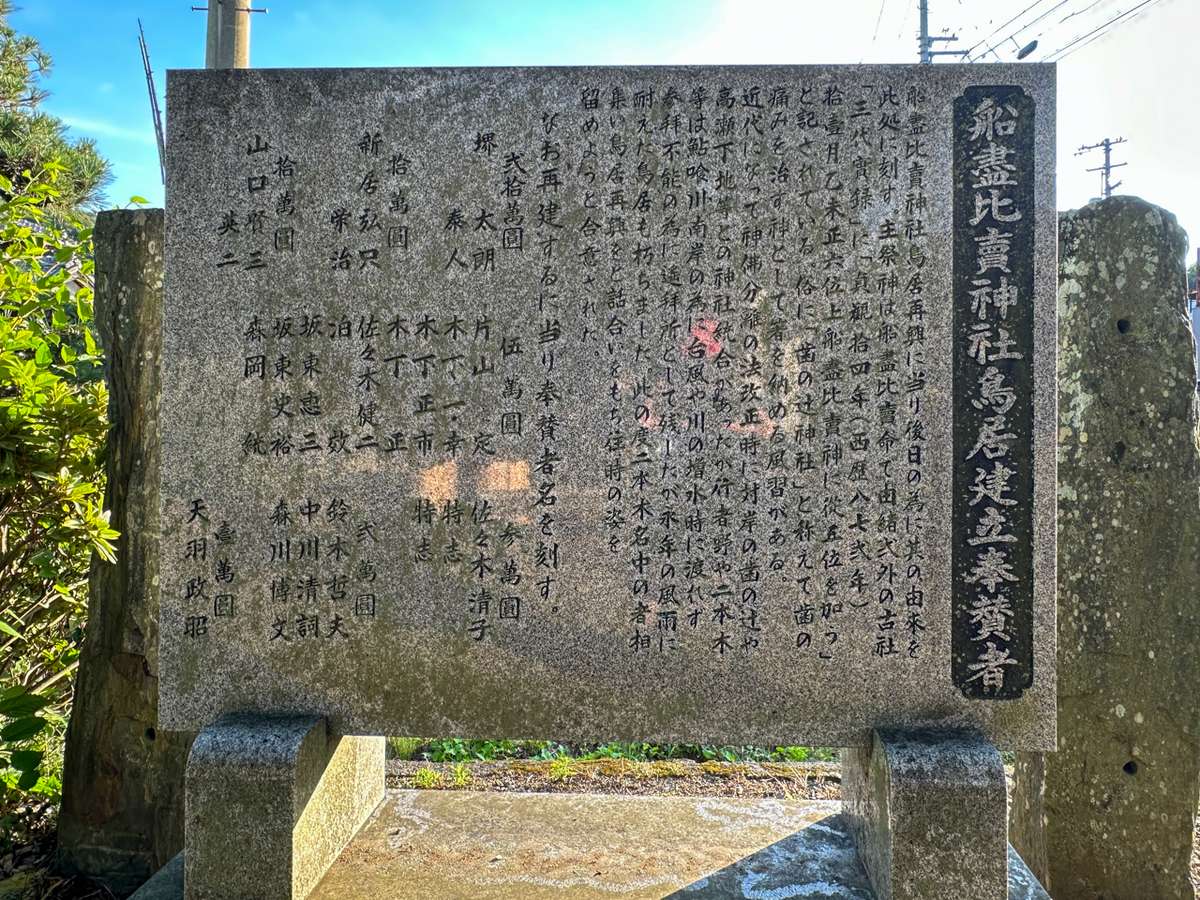 船盡比賣神社鳥居建立奉賛者
船盡比賣神社鳥居再興に当り後日の為に其の由来を
此処に刻す 主祭神は船盡比賣命で由緒式外の古社
「三代實録」に「貞観拾四年(西歴八七弐年)
拾壹月乙未正六位上船盡比賣神に從五位を加つ」
と記されている 俗に「歯の辻神社」と称えて歯の
痛みを治す神として箸を納める風習がある。
近代になって神佛分離の法改正時に対岸の歯の辻や
高瀬下地等の神社統合があったが行者野や二本木
等は鮎喰川南岸の為に台風や川の増水時に渡れず
参拝不能の為に遙拝所として残したが永年の風雨に
耐えた鳥居も朽ちました 此の度二本木名中の者相
集い鳥居再興をと話合いをもち往時の姿を
留めようと合意された。
なお再建するに当り奉賛者名を刻す。
弐拾萬圓 伍萬圓 参萬圓
堺 太朗 片山 定 佐々木清子
泰人 木下一幸 特志
木下正市 特志
拾萬圓 木下 正
新居弘只 佐々木健二 弐萬圓
栄治 泊 鈴木哲夫
坂東恵三 中川清詞
拾萬圓 坂東史裕 森川博文
山口賢三 森岡 統
英二 壹萬圓
天羽政昭